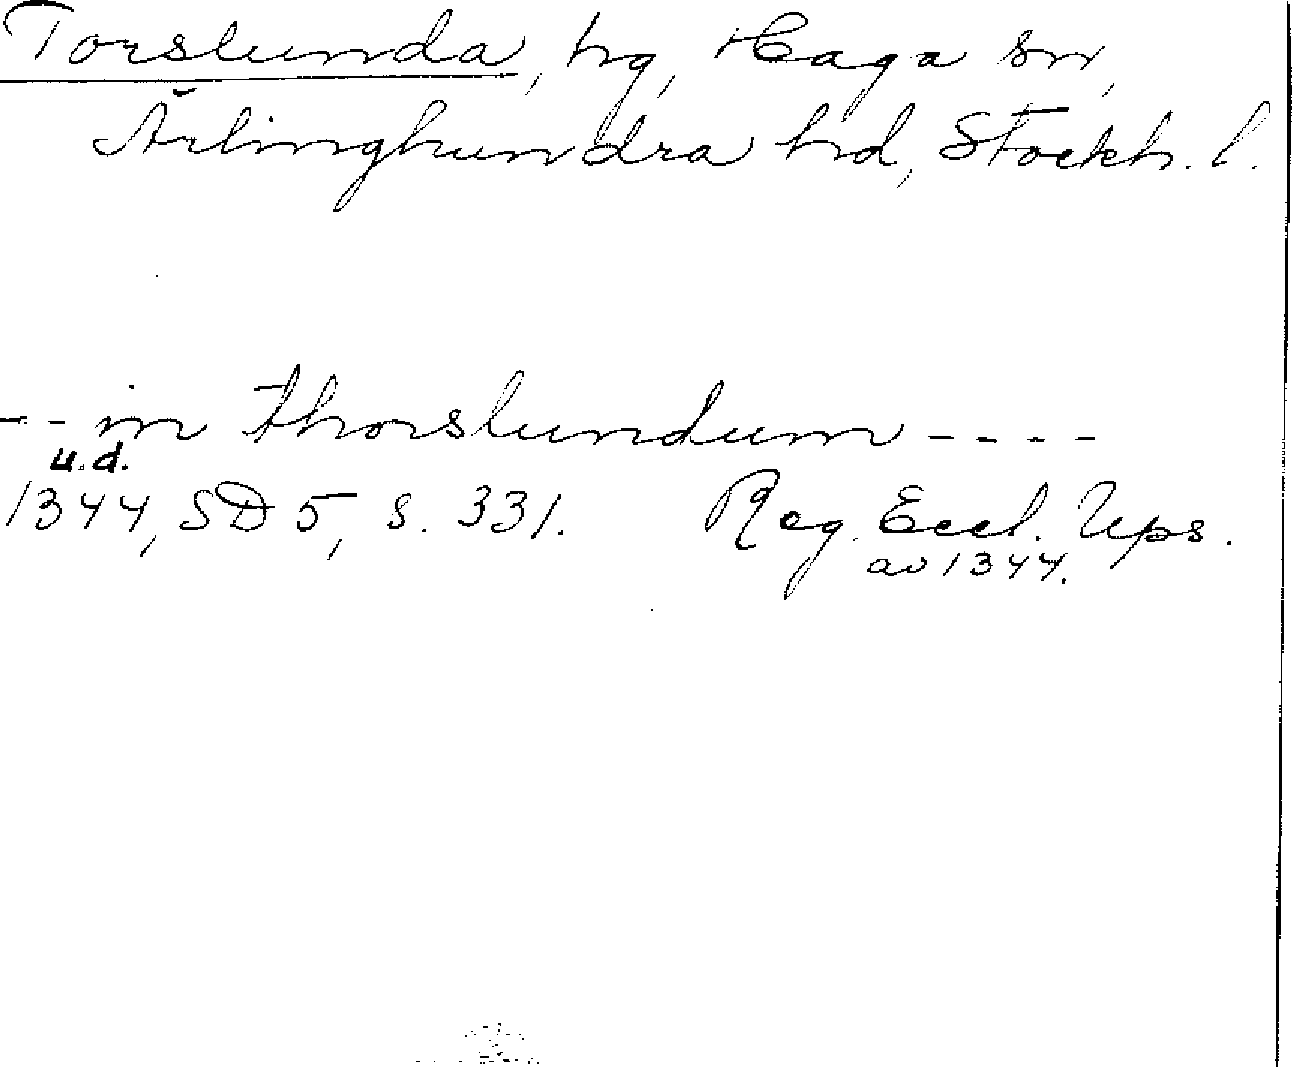 Torslunda, hg, Haga sn,
Ärlinghundra hd, Stockh. l.
-- in thorslundum ----
u.d.
1344, SD 5, s. 331. Reg. Eccl. Ups.
av 1344.